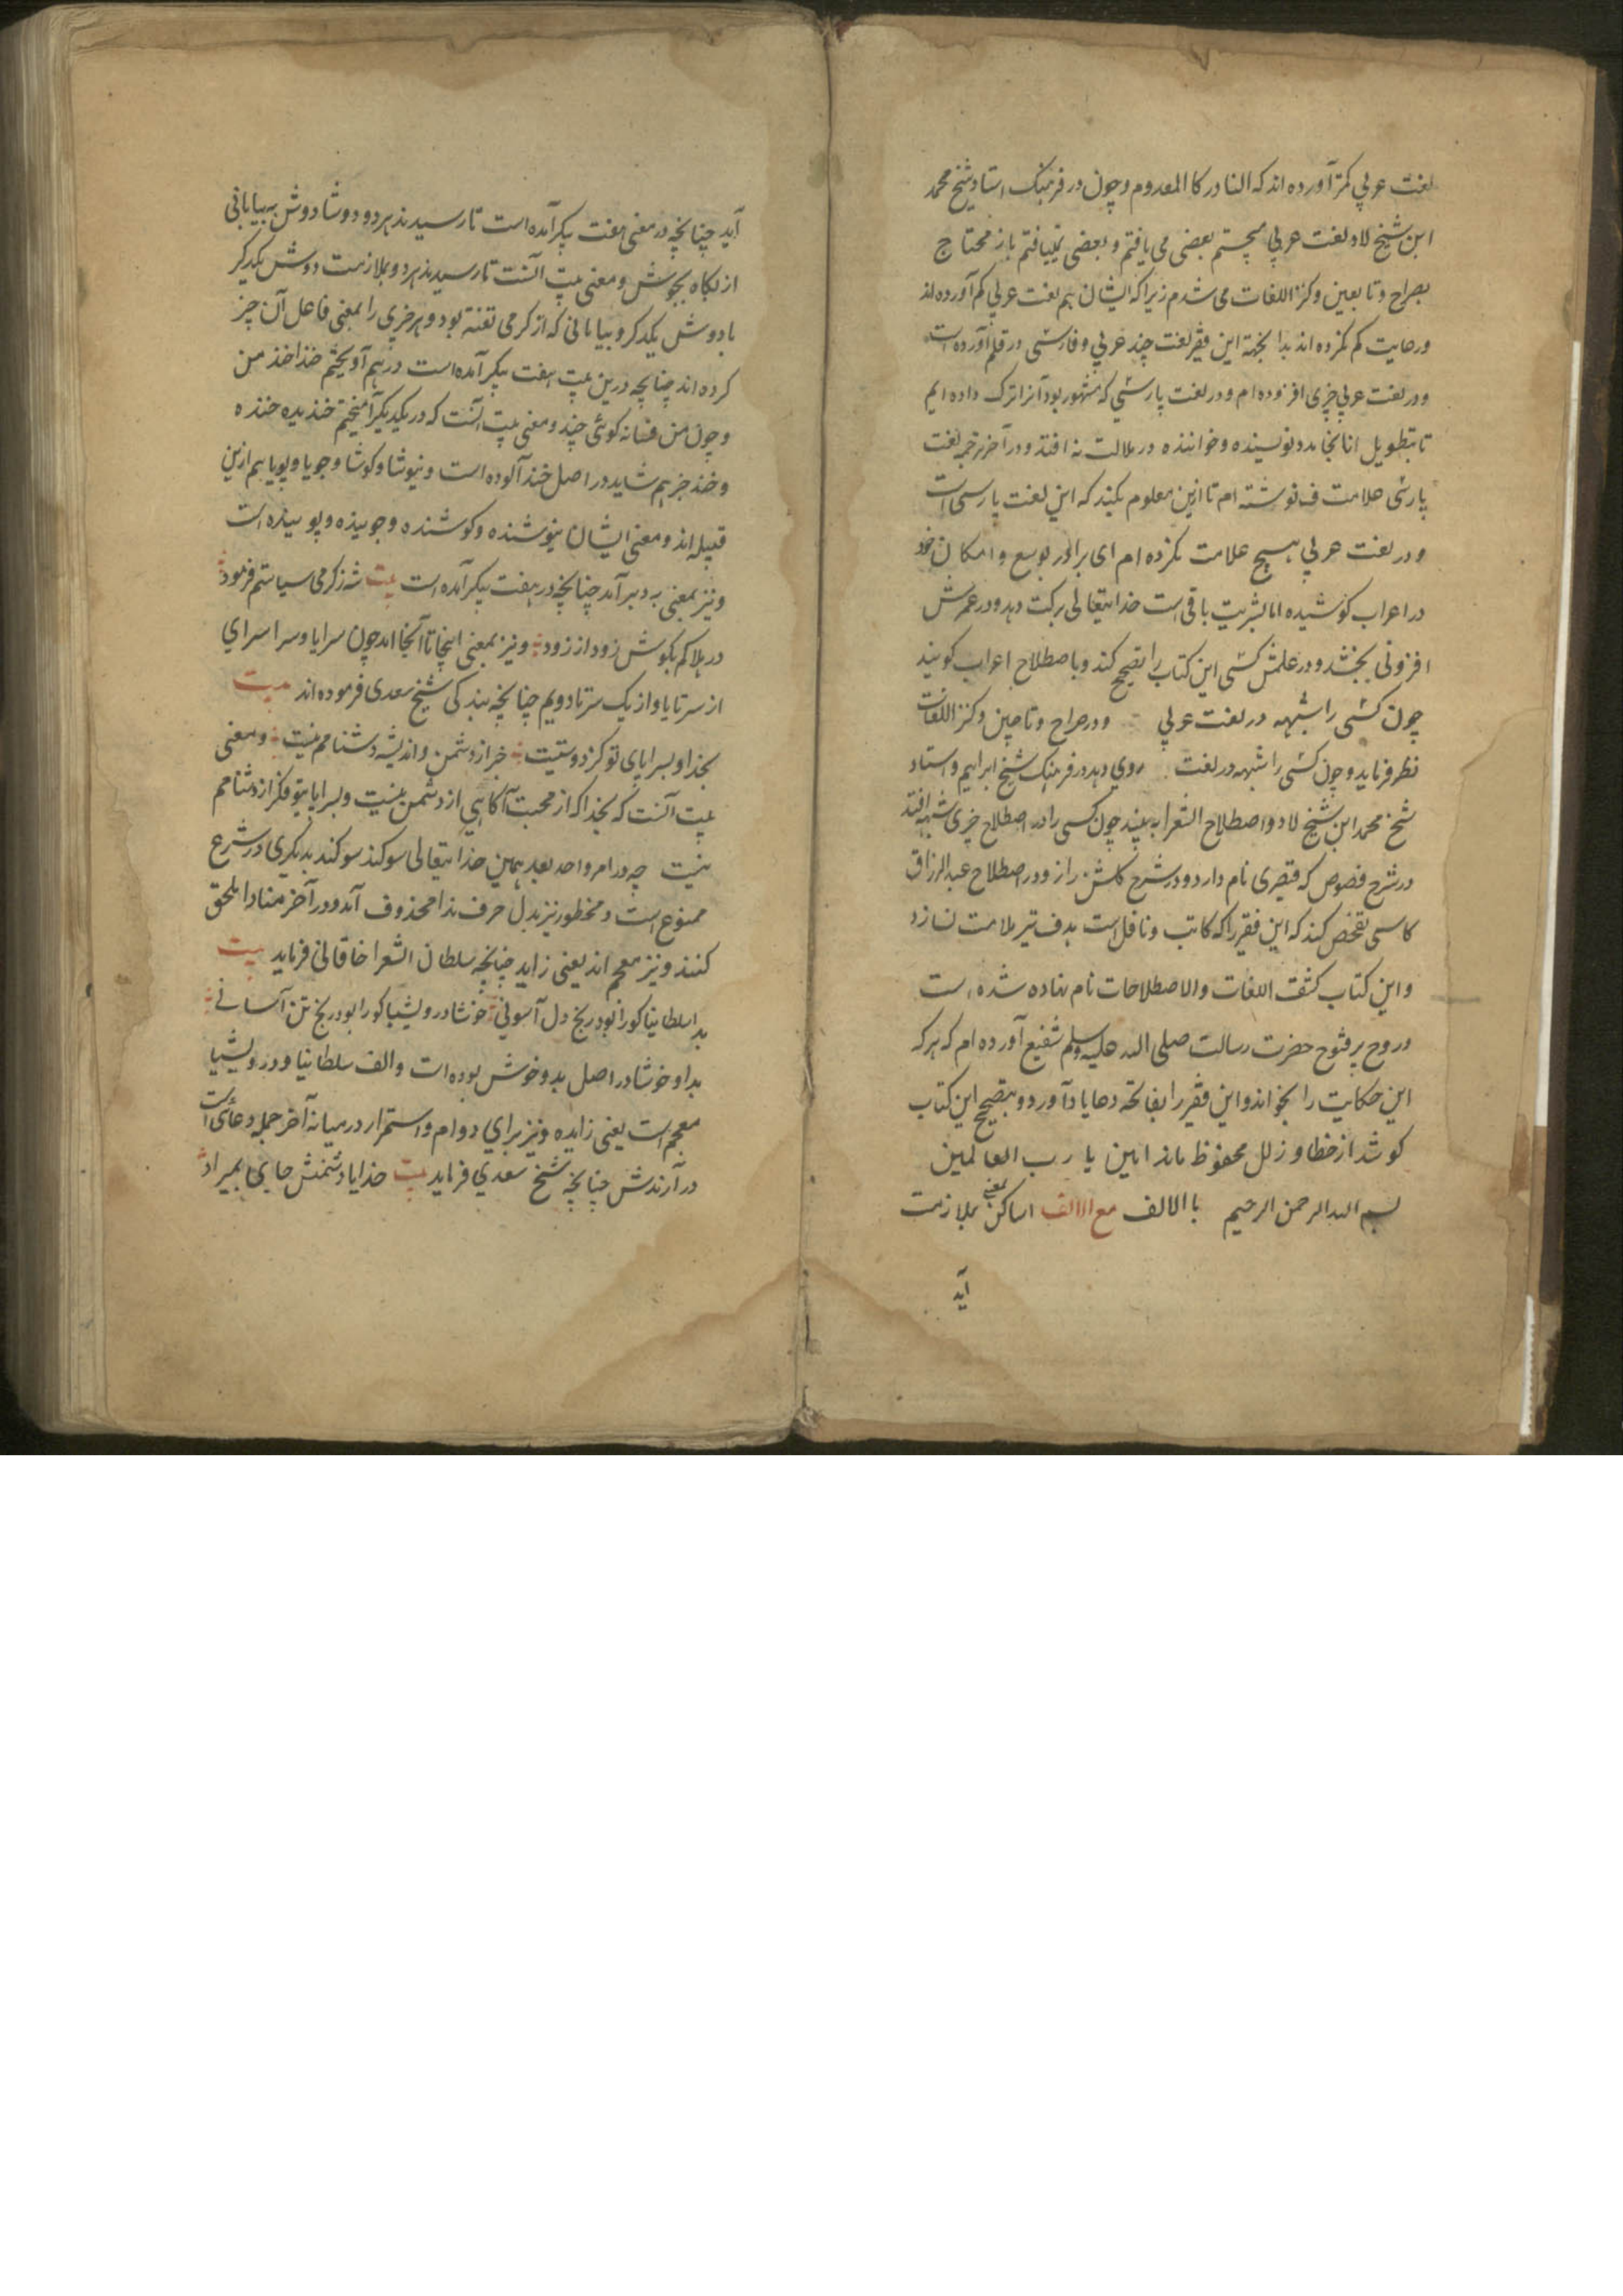 لغت عربی کمتر آورده اند که النادر کالمعدوم و چون در فرهنگ استاد شیخ محمد
ابن شیخ لاد لغت عربی میجستم بعضی می یافتم و بعضی نمییافتم باز محتاج
بصراح و تابعین و کنز اللغات می شدم زیرا که ایشان هم لغت عربی کم آورده اند
و رعایت کم نکرده اند بدا بجهة این فقیر لغت چند عربی و فارسی در قلم آورده است
و در لغت عربی چیزی افزوده ام و در لغت پارسی که مشهور بود آنرا ترک داده ایم
تا بتطویل انانجامد و نویسنده و خواننده در ملالت نه افتد و در آخر ترجمه لغت
پارسی علامت ف نوشته ام تا ازین معلوم بکنند که این لغت پارسی است
و در لغت عربی هیچ علامت نکرده ام ای برادر بوسع و امکان خود
در اعراب کوشیده اما بشریت باقی است خدایتعالی برکت دهد و در عمرش
افزونی بخشد و در علمش کسی این کتاب را تصحیح کند و باصطلاح اعراب گویند
چون کسی را شبهه در لغت عربی و در صراح و تاجین و کنز اللغات
نظر فرماید و چون کسی را شبهه در لغت روی دهد در فرهنگ شیخ ابراهیم و استاد
شیخ محمد ابن شیخ لاد و اصطلاح الشعرا به بیند چون کسی را در اصطلاح چیزی شبهه افتد
در شرح فصوص که قیصری نام دارد و در شرح گلشن راز و در اصطلاح عبد الرزاق
کاسی تفحص کند که این فقیر را که کاتب و ناقل است بدف تیر ملامت نسازد
و این کتاب کشف اللغات و الاصطلاحات نام نهاده شده است
و روح پر فتوح حضرت رسالت صلی الله علیه وسلم شفیع آورده ام که هر که
این حکایت را بخواند و این فقیر را بفاتحه دعا یاد آورد و بتصحیح این کتاب
کوشد از خطا و زلل محفوظ ماند امین یا رب العالمین
بسم الله الرحمن الرحیم با الالف مع الالف اساکن بمعنی ملازمت
آید
آید چنانچه در معنی هفت پیکر آمده است تا رسیدند هر دو دوشا دوش به بیابانی
از نگاه بجوش و معنی بیت آنست تا رسیدند هر دو بملازمت دوش یکدیگر
با دوش یکدیگر و بیابانی که از گرمی تفته بود و هر چیزی را بمعنی فاعل آن چیز
کرده اند چنانچه درین بیت هفت پیکر آمده است در هم آویختم خندا خند من
و چون من فسانه گوئی چند و معنی بیت آنست که در یکدیگر آمیختم خندیده خنده
و خند چیز هم شاید در اصل خند آلوده است و نیوشا و کوشا و جویا و پویا هم ازین
قبیله اند و معنی ایشان نیوشنده و کوشنده و جوینده و پوینده است
و نیز بمعنی به و بر آمد چنانچه در هفت پیکر آمده است بیت شه ز گرمی سیاستم فرمود
در هلاکم بکوش زود از زود و نیز بمعنی اینجا تا آنجا اند چون سراپا و سراسرای
از سر تا پا و از یک سر تا دویم چنانچه بندگی شیخ سعدی فرموده اند بیت
بخدا و بسراپای تو کز دوستیت خبر از دشمن و اندیشه دشنامم نیست و معنی
بیت آنست که بخدا که از محبت آگاهی از دشمن نیست و بسراپا بتو فکر از دشنامم
نیست چه در امر واحد بعد همین خدایتعالی سوگند سوگند بدیگری در شرع
ممنوع است و محظور نیز بدل حرف ندا محذوف آمد و در آخر منادا ملحق
کنند و نیز معجم اند یعنی زاید چنانچه سلطان الشعرا خاقانی فرماید بیت
بدا سلطانیا کو را بود رنج دل آسوبی خوشا درویشیا کو را بود رنج تن آسانی
بدا و خوشا در اصل بد و خوش بوده است و الف سلطانیا و درویشیا
معجم است یعنی زایده و نیز برای دوام و استمرار در میانه آخر جمله دعائی است
در آرندش چنانچه شیخ سعدی فرماید بیت خدایا دشمنش جایی بمیراد